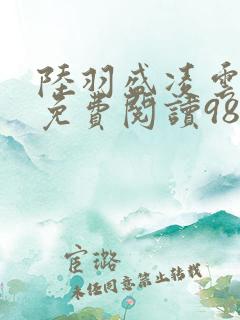 陸羽盛凌雲
免費閱讀98
宦璐
未經同意禁止轉載